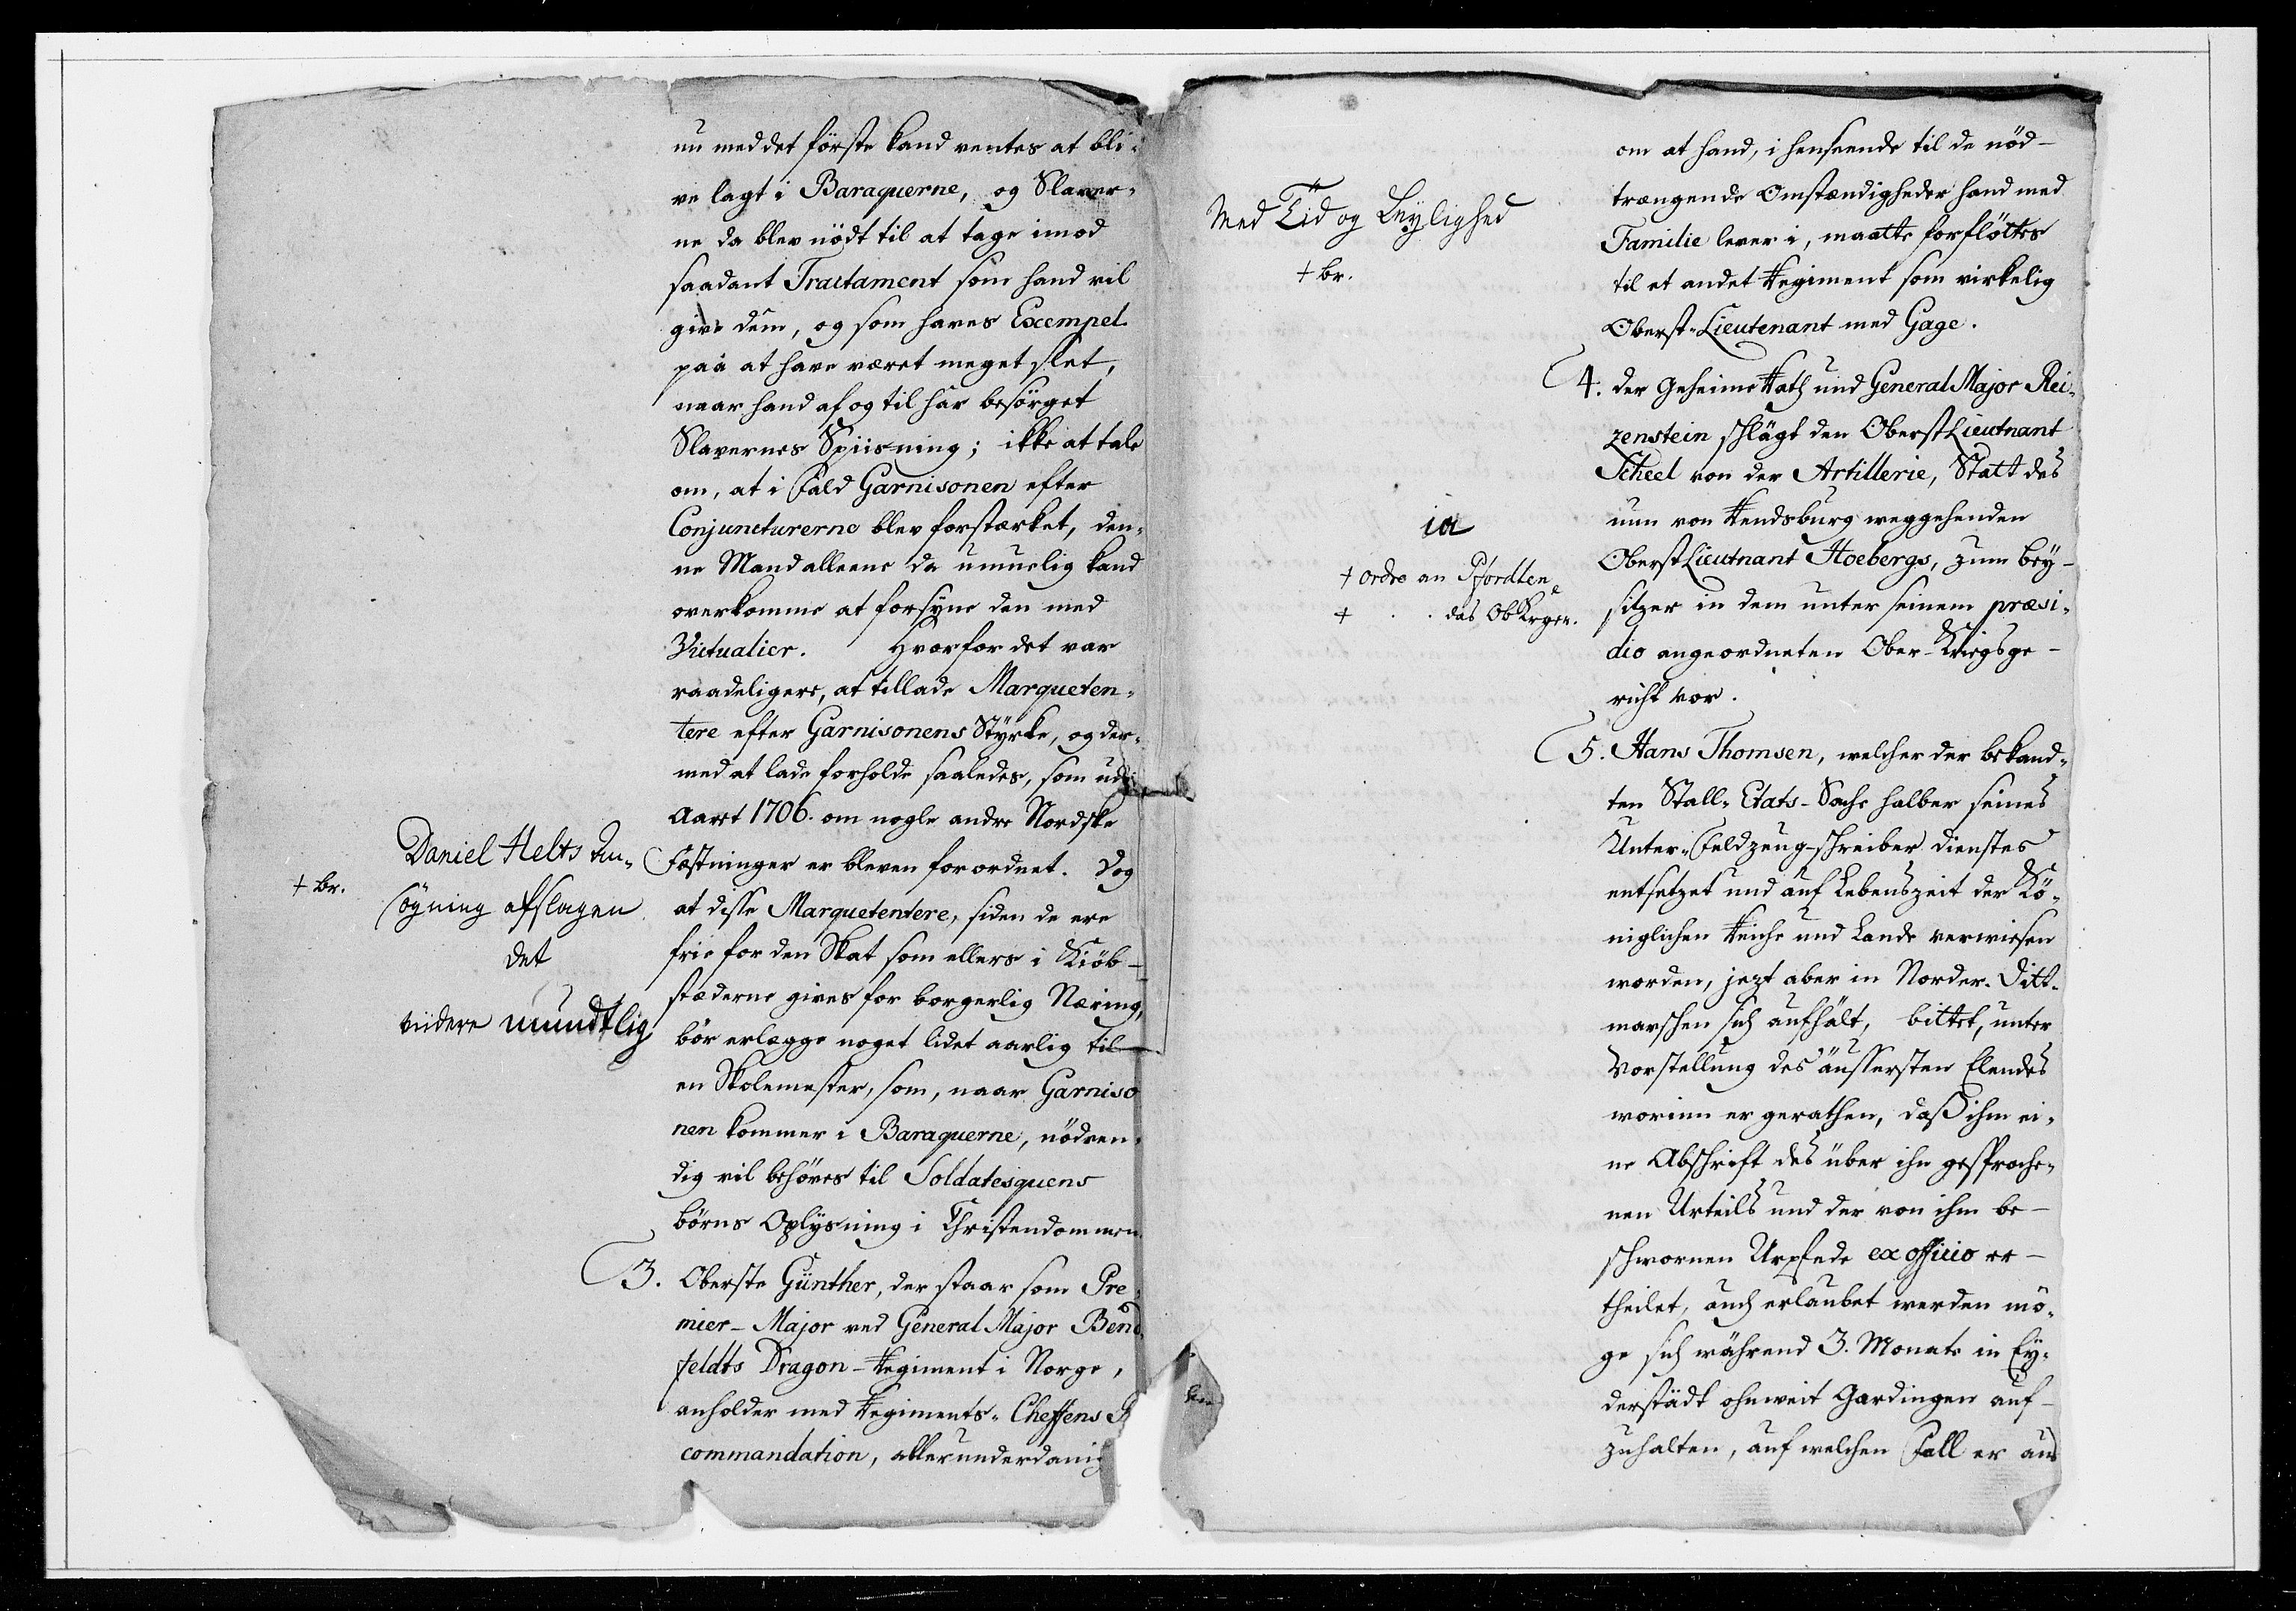 nu med det förste kand ventes at bli-
ve lagt i Baraquerne, og Slaver-
ne da blev nödt til at tage imod
saadant Tractament som hand vil
give dem, og som haves Exempel
paa at have været meget slet,
naar hand af og til har besörget
Slavernes Spiisning; ikke at tale
om, at i Fald Garnisonen efter
Conjuncturerne blev forstærket, den-
ne Mand alleene da umuelig kand
overkomme at forsyne den med
Victualier. Hvorfor det var
raadeligere, at tillade Marqueten-
tere efter Garnisonens Styrke, og der-
med at lade forholde saaledes, som udi
Aaret 1706. om nogle andre Nordske
Fæstninger er bleven forordnet. Dog
at disse Marquetentere, siden de ere
frie for den Skat som ellers i Kiöb-
stæderne gives for borgerlig Næring,
bör erlægge noget lidet aarlig til
en Skolemester, som, naar Garniso
nen kommer i Baraquerne, nödven-
dig vil behöves til Soldatesquens
börns Oplysning i Christendommen.
Daniel Helts An-
+ br.
sögning afslagen
det
viidere mundtlig
3. Oberste Günther, der staar som Pre-
mier-Major ved General Major Bend
feldts Dragon-Regiment i Norge,
anholder med Regiments-Cheffens R
commandation, allerunderdanig
om at hand, i henseende til de nöd-
trængende Omstændigheder hand med
Familie lever i, maatte forflöttes
til et andet Regiment som virkelig
Oberst-Lieutenant med Gage.
Med Tid og Leylighed
+ br.
4. Der Geheime Rath und General Major Rei-
zenstein schlägt den Oberst Lieutnant
Scheel von der Artillerie, Statt des
nun von Rendsburg weggehenden
Oberst Lieutnant Hoebergs, zum Bey-
sitzer in dem unter seinem præsi-
dio angeordneten Ober-Kriegsge-
richt vor.
ia
+ ordre an Pfordten
+ . . das ObKrger.
5. Hans Thomsen, welcher der bekand-
ten Stall-Etats-Sache halber seines
Unter-Feldzeug-schreiber Dienstes
entsetzet und auf Lebenszeit der Kö-
niglichen Reiche und Lande verwiesen
worden, jezt aber in Norder-Ditt-
marschen sich aufhält, bittet, unter
Vorstellung des äussersten Elendes
worinn er gerathen, daß ihm ei-
ne Abschrift des über ihn gesproche-
nen Urteils und der von ihm be-
schwornen Urpfede ex officio er-
theilet, auch erlaubet werden mö-
ge sich während 3. Monate in Ey-
derstädt ohnweit Gardingen auf-
zuhalten, auf welchen Fall er aus